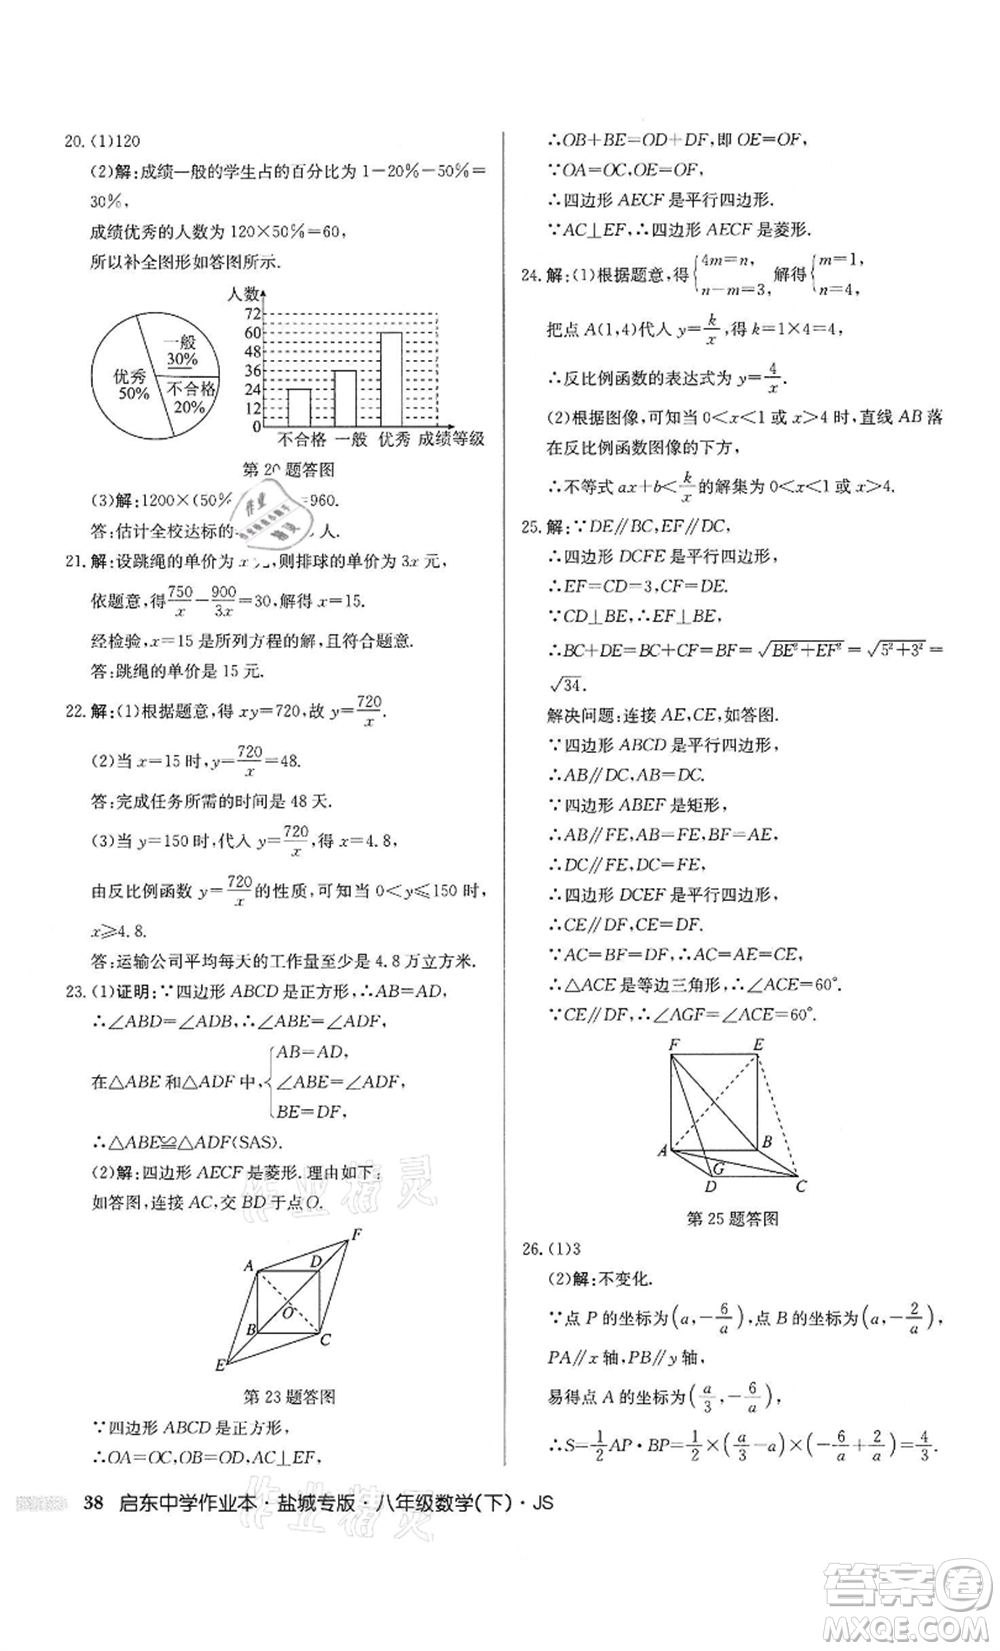 20. (1)120
(2)解:成绩一般的学生占的百分比为 1-20%-50%=
30%,
成绩优秀的人数为 120×50%=60,
所以补全图形如答图所示.
人数
72
60
48
36
24
12
0
不合格 一般 优秀 成绩等级
优秀
50%
一般
30%
不合格
20%
第 20 题答图
(3)解:1200×(50% =960.
答:估计全校达标的 人.
21. 解:设跳绳的单价为 x 元,则排球的单价为 3x 元,
依题意,得 750/x - 900/3x = 30,解得 x=15.
经检验,x=15 是所列方程的解,且符合题意.
答:跳绳的单价是 15 元.
22. 解:(1)根据题意,得 xy=720,故 y=720/x.
(2)当 x=15 时,y=720/x=48.
答:完成任务所需的时间是 48 天.
(3)当 y=150 时,代入 y=720/x,得 x=4.8,
由反比例函数 y=720/x 的性质,可知当 0<y≤150 时,
x≥4.8.
答:运输公司平均每天的工作量至少是 4.8 万立方米.
23. (1)证明:∵四边形 ABCD 是正方形,∴AB=AD,
∴∠ABD=∠ADB,∴∠ABE=∠ADF,
在△ABE 和△ADF 中,{AB=AD,
∠ABE=∠ADF,
BE=DF,
∴△ABE≌△ADF(SAS).
(2)解:四边形 AECF 是菱形.理由如下:
如答图,连接 AC,交 BD 于点 O.
F
A
D
O
B
C
E
第 23 题答图
∵四边形 ABCD 是正方形,
∴OA=OC,OB=OD,AC⊥EF,
∴OB+BE=OD+DF,即 OE=OF,
∵OA=OC,OE=OF,
∴四边形 AECF 是平行四边形.
∵AC⊥EF,∴四边形 AECF 是菱形.
24. 解:(1)根据题意,得{4m=n, n-m=3,解得{m=1, n=4,
把点 A(1,4)代入 y=k/x,得 k=1×4=4,
∴反比例函数的表达式为 y=4/x.
(2)根据图像,可知当 0<x<1 或 x>4 时,直线 AB 落
在反比例函数图像的下方,
∴不等式 ax+b<k/x 的解集为 0<x<1 或 x>4.
25. 解:∵DE∥BC,EF∥DC,
∴四边形 DCFE 是平行四边形,
∴EF=CD=3,CF=DE.
∵CD⊥BE,∴EF⊥BE,
∴BC+DE=BC+CF=BF=√(BE²+EF²)=√(5²+3²)=
√34.
解决问题:连接 AE,CE,如答图.
∵四边形 ABCD 是平行四边形,
∴AB∥DC,AB=DC.
∵四边形 ABEF 是矩形,
∴AB∥FE,AB=FE,BF=AE,
∴DC∥FE,DC=FE,
∴四边形 DCEF 是平行四边形,
∴CE∥DF,CE=DF.
∵AC=BF=DF,∴AC=AE=CE,
∴△ACE 是等边三角形,∴∠ACE=60°.
∵CE∥DF,∴∠AGF=∠ACE=60°.
F
E
A
B
G
D
C
第 25 题答图
26. (1)3
(2)解:不变化.
∵点 P 的坐标为(a,-6/a),点 B 的坐标为(a,-2/a),
PA∥x 轴,PB∥y 轴,
易得点 A 的坐标为(a/3,-6/a),
∴S=1/2 AP·BP=1/2×(a/3-a)×(-6/a+2/a)=4/3.
38 启东中学作业本·盐城专版·八年级数学(下)·JS
作业精灵
作业精灵
答案卷
MXQE.COM